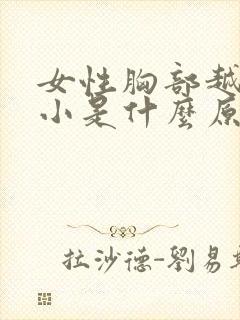 女性胸部越
小是什麼原
拉沙德-劉易斯